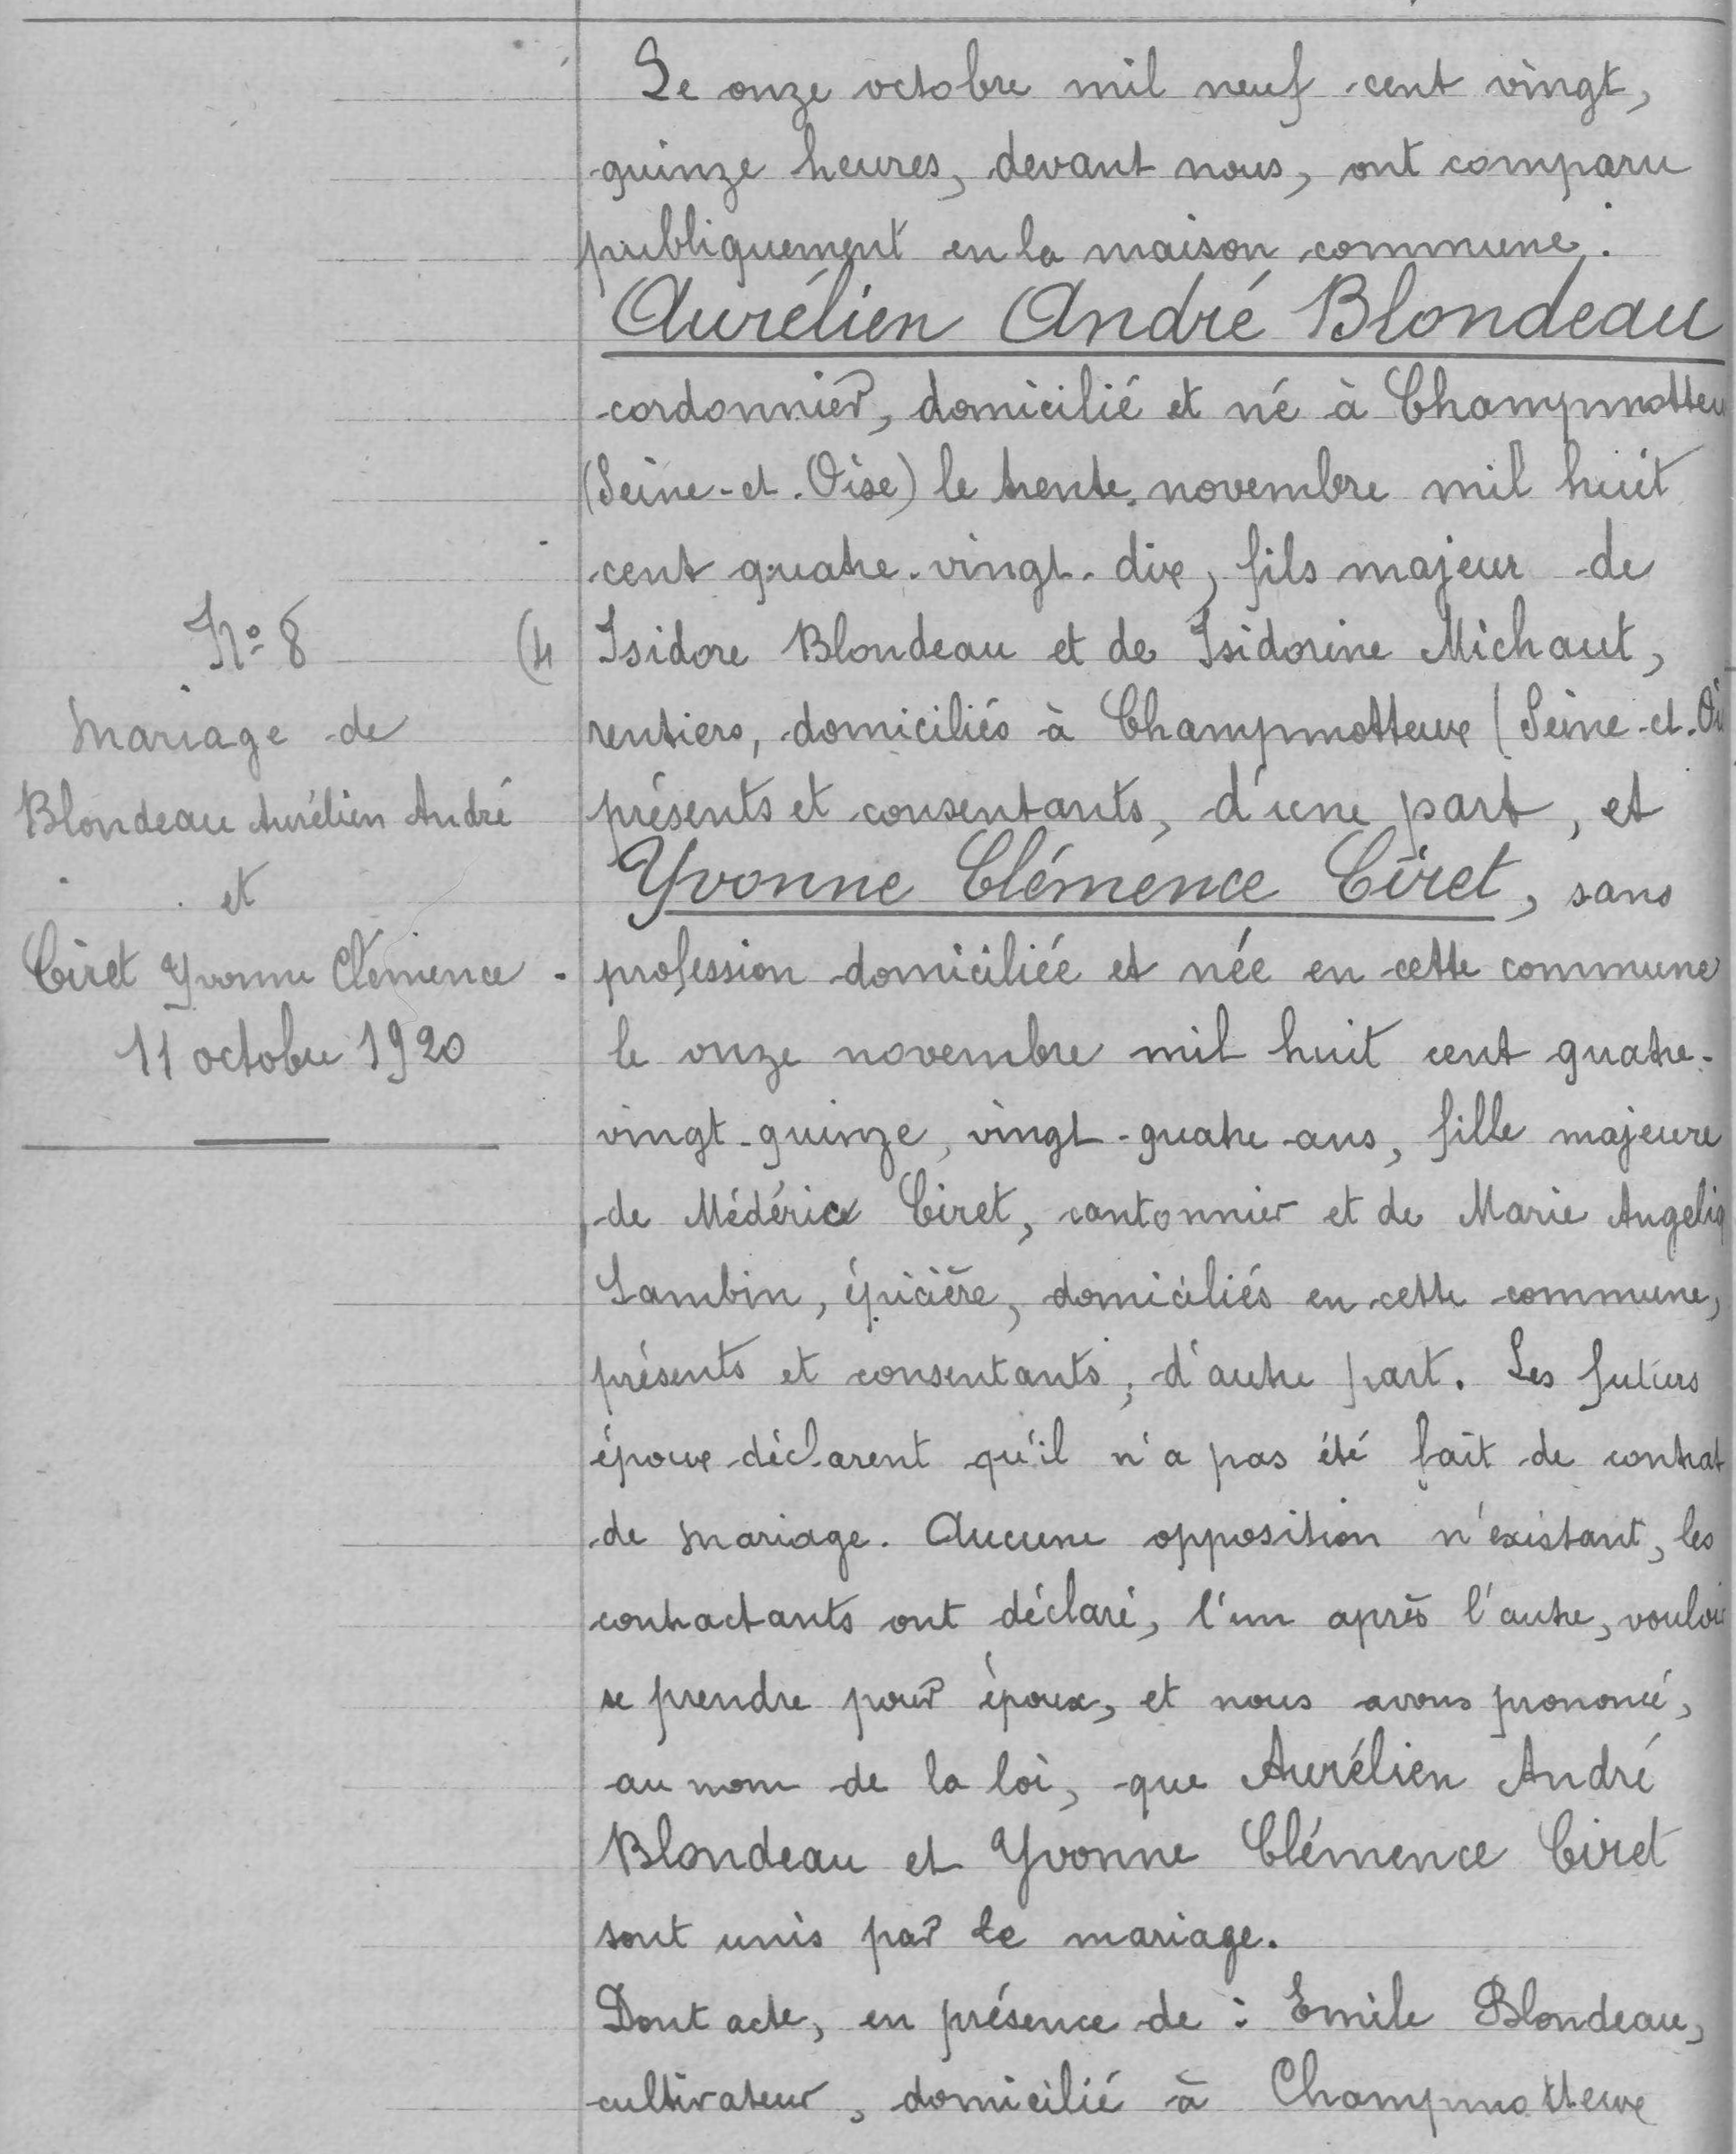 Le onze octobre mil neuf cent vingt,
quinze heures, devant nous, ont comparu
publiquement en la maison commune.
Aurélien André Blondeau
cordonnier, domicilié et né à Champmotteu
(Seine-et-Oise) le trente novembre mil huit
cent quatre-vingt-dix, fils majeur de
Isidore Blondeau et de Isidorine Michaut,
rentiers, domiciliés à Champmotteux (Seine-et-Oi
présents et consentants, d'une part, et
Yvonne Clémence Ciret, sans
profession domiciliée et née en cette commune
le onze novembre mil huit cent quatre-
vingt-quinze, vingt-quatre ans, fille majeure
de Médéric Ciret, cantonnier et de Marie Angeliq
Lambin, épicière, domiciliés en cette commune,
présents et consentants, d'autre part. Les futurs
époux déclarent qu'il n'a pas été fait de contrat
de mariage. Aucune opposition n'existant, les
contractants ont déclaré, l'un après l'autre, vouloir
se prendre pour époux, et nous avons prononcé,
au nom de la loi, que Aurélien André
Blondeau et Yvonne Clémence Ciret
sont unis par le mariage.
Dont acte, en présence de : Emile Blondeau,
cultivateur, domicilié à Champmotteux
No 8
Mariage de
Blondeau Aurélien André
et
Ciret Yvonne Clémence
11 octobre 1920